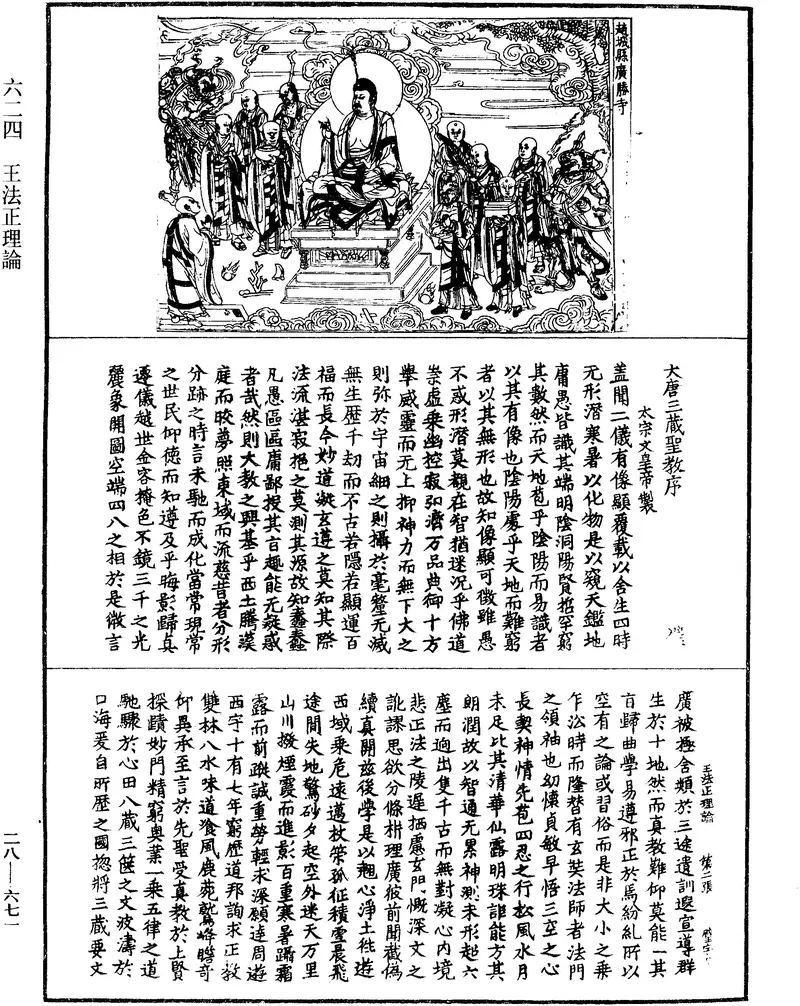 趙城縣廣勝寺
大唐三蔵聖教序
太宗文皇帝製
蓋聞二儀有像顯覆載以含生四時
无形潛寒暑以化物是以窺天鑑地
庸愚皆識其端明陰洞陽賢哲罕窮
其數然而天地苞乎陰陽而易識者
以其有像也陰陽處乎天地而難窮
者以其無形也故知像顯可徵雖愚
不惑形潛莫覩在智猶迷況乎佛道
崇虛乘幽控寂弘濟万品典御十方
舉威靈而无上抑神力而無下大之
則弥於宇宙細之則攝於毫釐无滅
無生歴千劫而不古若隱若顯運百
福而長今妙道凝玄遵之莫知其際
法流湛寂挹之莫測其源故知蠢蠢
凡愚區區庸鄙投其旨趣能无疑惑
者哉然則大教之興基乎西土騰漢
庭而皎夢照東域而流慈昔者分形
分跡之時言未馳而成化當常現常
之世民仰德而知遵及乎晦影歸真
遷儀越世金容掩色不鏡三千之光
麗象開圖空端四八之相於是微言
王法正理論 第二張
廣被極含類於三途遺訓遐宣導群
生於十地然而真教難仰莫能一其
旨歸曲學易遵邪正於焉紛糺所以
空有之論或習俗而是非大小之乗
乍訟時而隆替有玄奘法師者法門
之領袖也幼懷貞敏早悟三空之心
長契神情先苞四忍之行松風水月
未足比其清華仙露明珠詎能方其
朗潤故以智通无累神測未形超六
塵而迥出隻千古而無對凝心内境
悲正法之陵遲栖慮玄門慨深文之
訛謬思欲分條析理廣彼前聞截偽
續真開兹後學是以翹心淨土往遊
西域乗危遠邁杖策孤征積雪晨飛
途間失地驚砂夕起空外迷天万里
山川撥煙霞而進影百重寒暑躡霜
露而前蹤誠重勞輕求深願達周遊
西宇十有七年窮歷道邦詢求正教
雙林八水味道飡風鹿菀鷲峰瞻奇
仰異承至言於先聖受真教於上賢
探賾妙門精窮奥業一乗五律之道
馳驟於心田八藏三篋之文波濤於
口海爰自所歷之國惣將三藏要文
六二四 王法正理論
二八—六七一